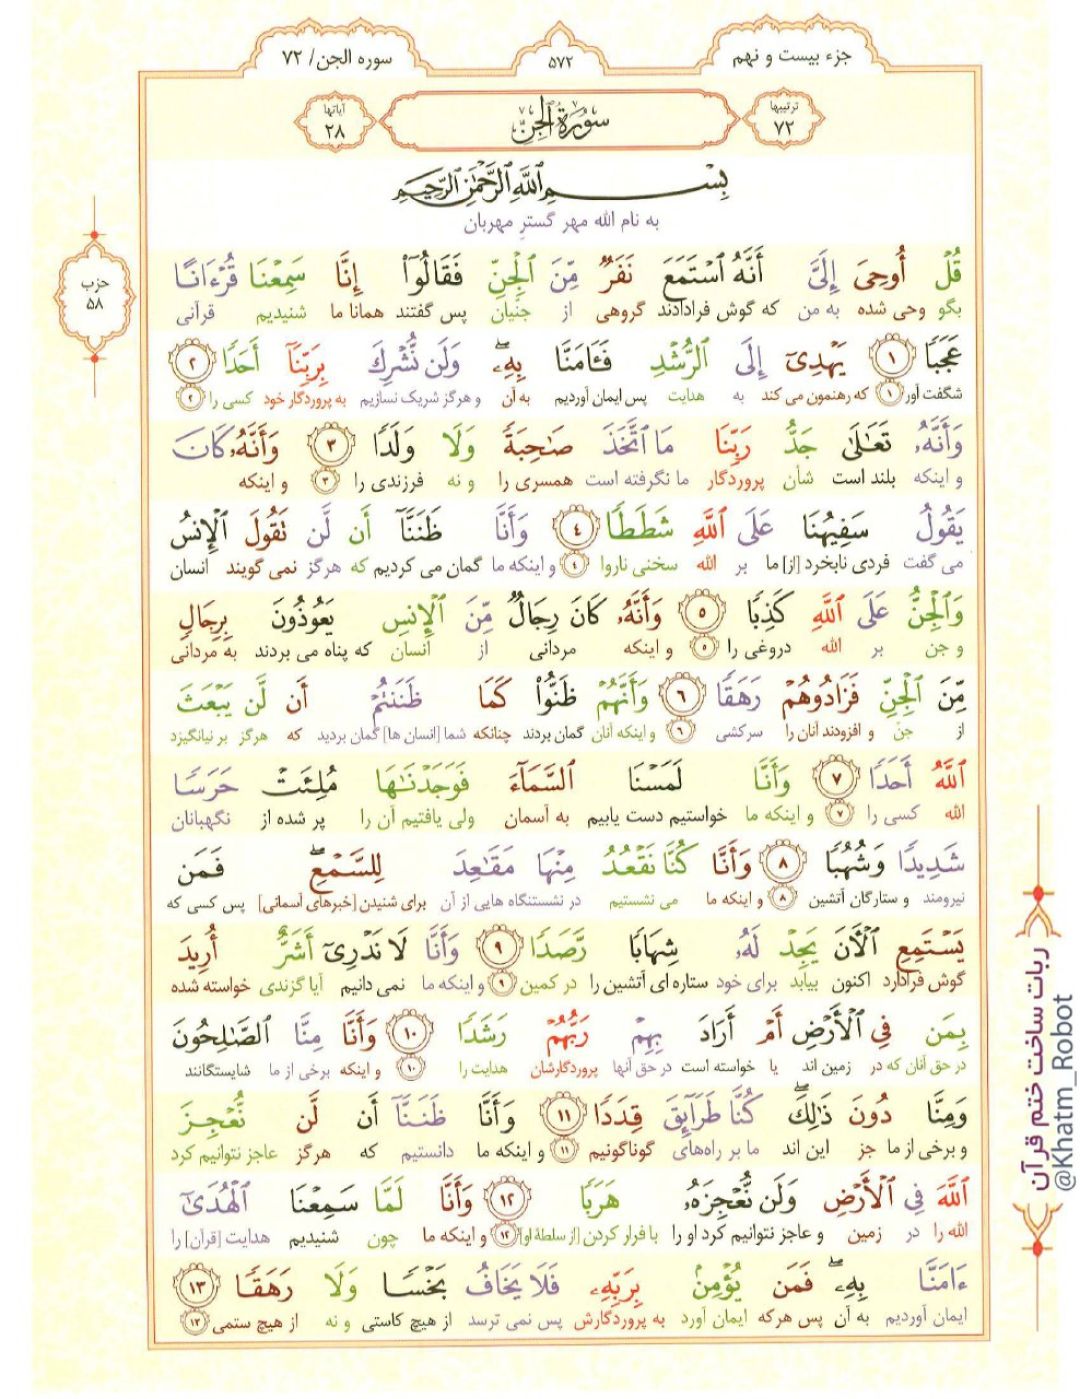 جزء بیست و نهم
۵۷۲
سوره الجن/ ۷۲
ترتیبها
۷۲
سُورَةُ الجِنّ
آیاتها
۲۸
بِسْمِ ٱللَّهِ ٱلرَّحْمَٰنِ ٱلرَّحِيمِ
به نام الله مهر گسترِ مهربان
حزب
۵۸
قُلْ أُوحِىَ إِلَىَّ أَنَّهُ ٱسْتَمَعَ نَفَرٌ مِّنَ ٱلْجِنِّ فَقَالُوٓا۟ إِنَّا سَمِعْنَا قُرْءَانًا
بگو وحی شده به من که گوش فرادادند گروهی از جنّیان پس گفتند همانا ما شنیدیم قرآنی
عَجَبًا ۱ يَهْدِىٓ إِلَى ٱلرُّشْدِ فَـَٔامَنَّا بِهِۦ وَلَن نُّشْرِكَ بِرَبِّنَآ أَحَدًا ۲
شگفت آور ۱ که رهنمون می کند به هدایت پس ایمان آوردیم به آن و هرگز شریک نسازیم به پروردگار خود کسی را ۲
وَأَنَّهُۥ تَعَٰلَىٰ جَدُّ رَبِّنَا مَا ٱتَّخَذَ صَٰحِبَةً وَلَا وَلَدًا ۳ وَأَنَّهُۥ كَانَ
و اینکه بلند است شأن پروردگار ما نگرفته است همسری را و نه فرزندی را ۳ و اینکه
يَقُولُ سَفِيهُنَا عَلَى ٱللَّهِ شَطَطًا ۴ وَأَنَّا ظَنَنَّآ أَن لَّن تَقُولَ ٱلْإِنسُ
می گفت فردی نابخرد [از] ما بر الله سخنی ناروا ۴ و اینکه ما گمان می کردیم که هرگز نمی گویند انسان
وَٱلْجِنُّ عَلَى ٱللَّهِ كَذِبًا ۵ وَأَنَّهُۥ كَانَ رِجَالٌ مِّنَ ٱلْإِنسِ يَعُوذُونَ بِرِجَالٍ
و جن بر الله دروغی را ۵ و اینکه مردانی از انسان که پناه می بردند به مردانی
مِّنَ ٱلْجِنِّ فَزَادُوهُمْ رَهَقًا ۶ وَأَنَّهُمْ ظَنُّوا۟ كَمَا ظَنَنتُمْ أَن لَّن يَبْعَثَ
از جن و افزودند آنان را سرکشی ۶ و اینکه آنان گمان بردند چنانکه شما [انسان ها] گمان بردید که هرگز بر نیانگیزد
ٱللَّهُ أَحَدًا ۷ وَأَنَّا لَمَسْنَا ٱلسَّمَآءَ فَوَجَدْنَٰهَا مُلِئَتْ حَرَسًا
الله کسی را ۷ و اینکه ما خواستیم دست یابیم به آسمان ولی یافتیم آن را پر شده از نگهبانان
شَدِيدًا وَشُهُبًا ۸ وَأَنَّا كُنَّا نَقْعُدُ مِنْهَا مَقَٰعِدَ لِلسَّمْعِ فَمَن
نیرومند و ستارگان آتشین ۸ و اینکه ما می نشستیم در نشستنگاه هایی از آن برای شنیدن [خبرهای آسمانی] پس کسی که
يَسْتَمِعِ ٱلْءَانَ يَجِدْ لَهُۥ شِهَابًا رَّصَدًا ۹ وَأَنَّا لَا نَدْرِىٓ أَشَرٌّ أُرِيدَ
گوش فرادارد اکنون بیابد برای خود ستاره ای آتشین را در کمین ۹ و اینکه ما نمی دانیم آیا گزندی خواسته شده
بِمَن فِى ٱلْأَرْضِ أَمْ أَرَادَ بِهِمْ رَبُّهُمْ رَشَدًا ۱۰ وَأَنَّا مِنَّا ٱلصَّٰلِحُونَ
در حق آنان که در زمین اند یا خواسته است در حق آنها پروردگارشان هدایت را ۱۰ و اینکه برخی از ما شایستگانند
وَمِنَّا دُونَ ذَٰلِكَ كُنَّا طَرَآئِقَ قِدَدًا ۱۱ وَأَنَّا ظَنَنَّآ أَن لَّن نُّعْجِزَ
و برخی از ما جز این اند ما بر راه‌های گوناگونیم ۱۱ و اینکه ما دانستیم که هرگز عاجز نتوانیم کرد
ٱللَّهَ فِى ٱلْأَرْضِ وَلَن نُّعْجِزَهُۥ هَرَبًا ۱۲ وَأَنَّا لَمَّا سَمِعْنَا ٱلْهُدَىٰٓ
الله را در زمین و عاجز نتوانیم کرد او را با فرار کردن [از سلطهٔ او] ۱۲ و اینکه ما چون شنیدیم هدایت [قرآن] را
ءَامَنَّا بِهِۦ فَمَن يُؤْمِنۢ بِرَبِّهِۦ فَلَا يَخَافُ بَخْسًا وَلَا رَهَقًا ۱۳
ایمان آوردیم به آن پس هرکه ایمان آورد به پروردگارش پس نمی ترسد از هیچ کاستی و نه از هیچ ستمی ۱۳
ربات ساخت ختم قرآن
@Khatm_Robot